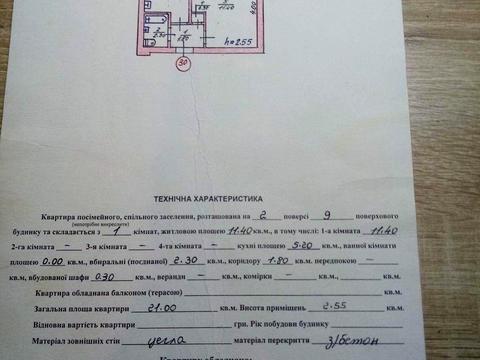 3
11.40
4.80
2
2.30
1
1.80
0.30
h=2.55
30
ТЕХНІЧНА ХАРАКТЕРИСТИКА
Квартира посімейного, спільного заселення, розташована на 2 поверсі 9 поверхового
(непотрібне викреслити)
будинку та складається з 1 кімнат, житловою площею 11.40 кв.м., в тому числі: 1-а кімната 11.40
2-га кімната – 3-я кімната – 4-та кімната – кухні площею 5.20 кв.м., ванної кімнати
площею 0.00 кв.м., вбиральні (поєднаної) 2.30 кв.м., коридору 1.80 кв.м. передпокою –
кв.м, вбудованої шафи 0.30 кв.м., веранди – кв.м., комірки – кв.м.
Квартира обладнана балконом (терасою) кв.м.
Загальна площа квартири 21.00 кв.м. Висота приміщень 2.55 кв.м.
Відновна вартість квартири грн. Рік побудови будинку
Матеріал зовнішніх стін цегла матеріал перекриття з/бетон
Квартира обладнана: